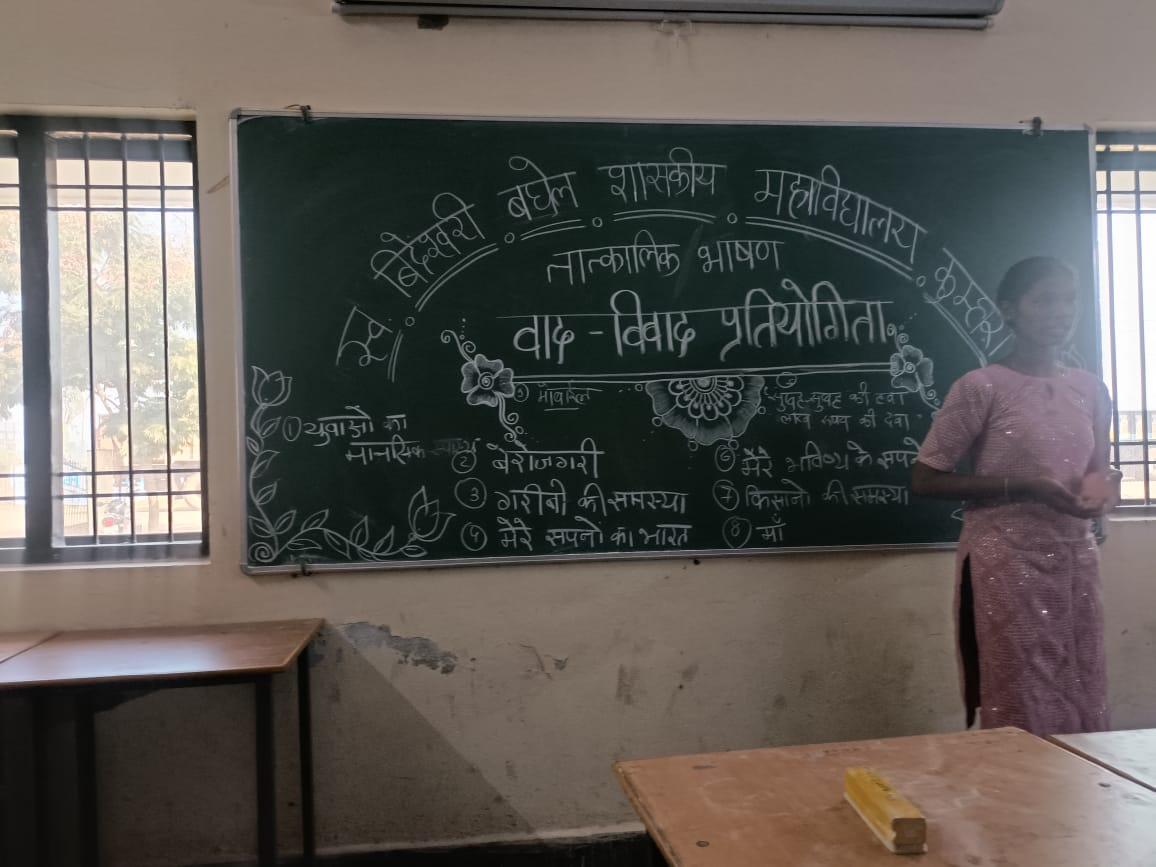 स्व बिंदेश्वरी बघेल शासकीय महाविद्यालय कुम्हारी
तात्कालिक भाषण
वाद - विवाद प्रतियोगिता
① युवाओं का
मानसिक
② बेरोजगरी
③ गरीबी की समस्या
④ मेरे सपनो का भारत
⑤ मोबाईल
सुबह-सुबह की हवा
लाख रुपय की दवा
⑥ मेरे भविष्य के सपने
⑦ किसानो की समस्या
⑧ माँ